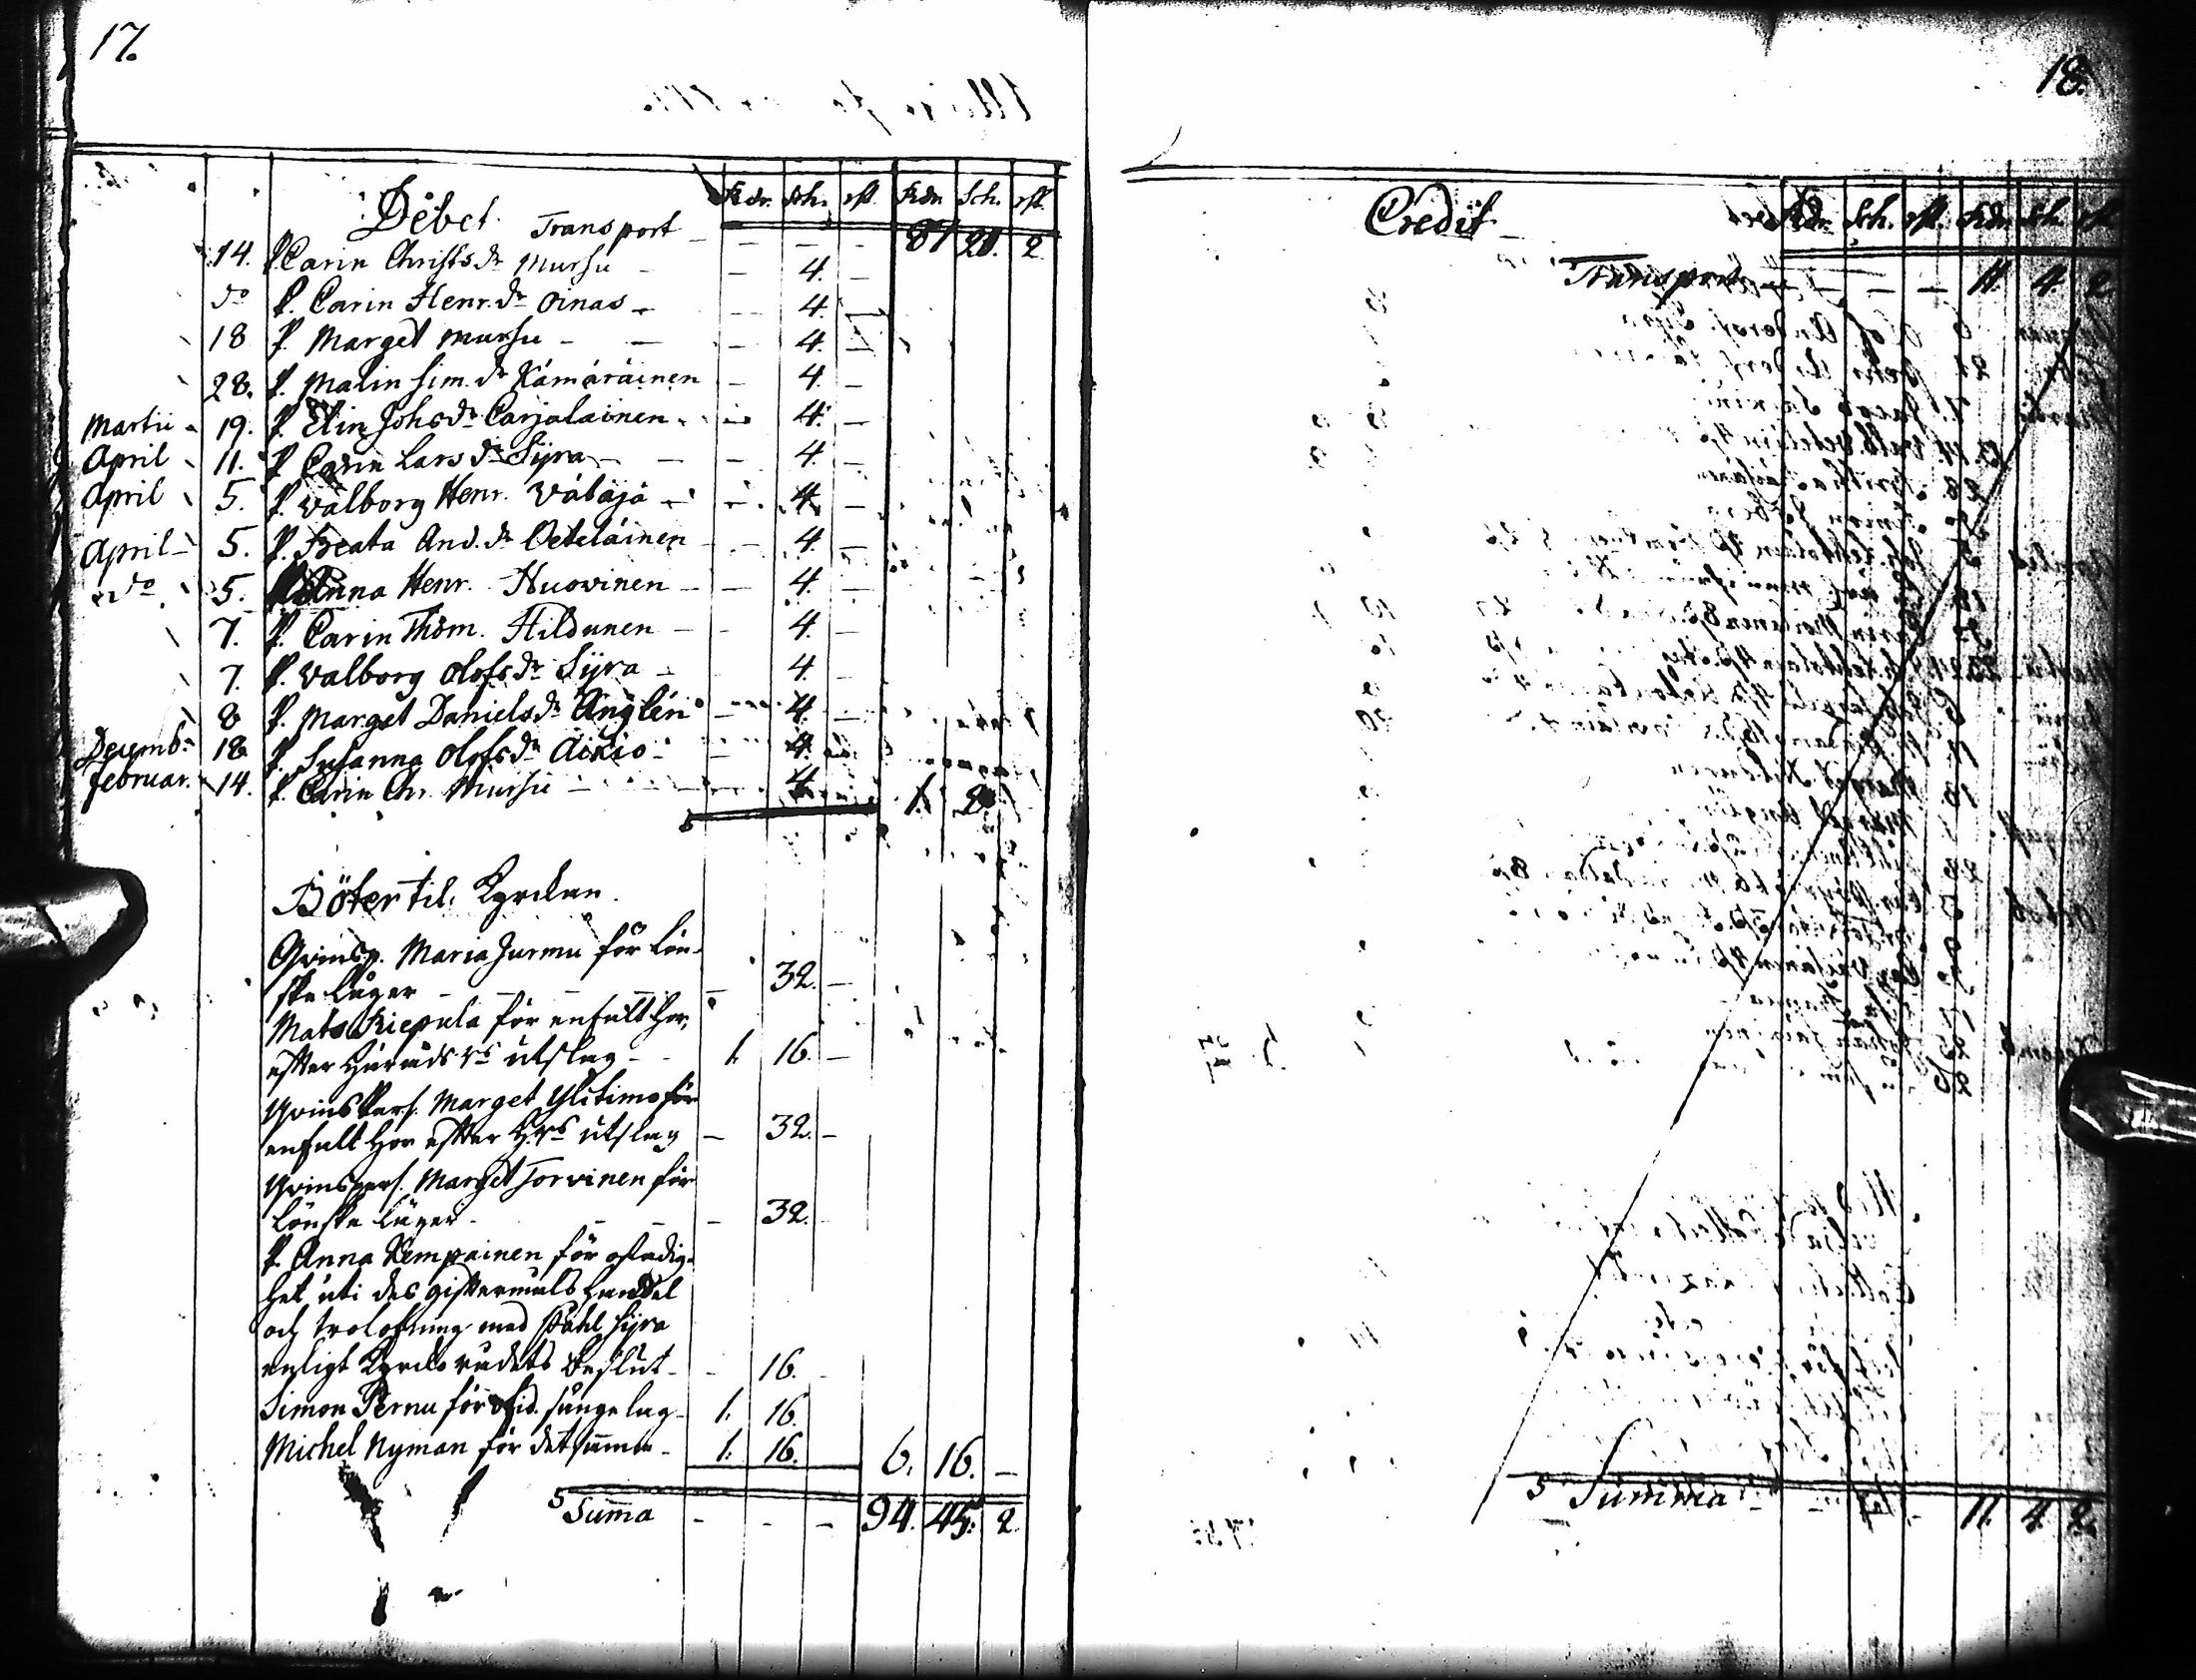 17.
Debet. Rdr. Sch. rst. Rdr. Sch. rst.
Transport - - - - 87 21. 2
14. P. Carin Christsdr Mursu - - 4. -
do P. Carin Henr.dr Oinas - - 4. -
18 P. Marget Mursu - - - 4. -
28. P. Malin Sim.dr Kämäräinen - 4. -
Martii - 19. P. Elin Johsdr Carjalainen - - 4. -
April 11. P. Carin Larsdr Sijra - - - 4. -
April 5. P. Valborg Henr. Väläjä - - 4. -
April - 5. P. Beata And.dr Oeteläinen - 4. -
do 5. P. Anna Henr. Huovinen - - 4. -
7. P. Carin Thom. Hildunen - - 4. -
7. P. Valborg Olofsdr Sijra - 4. -
8 P. Marget Danielsdr Änglén - 4. -
Decembr 18 P. Susanna Olofsdr Aikio - - 4.
Februar. 14. P. Carin Chr. Mursu - - 4. 1. 8
Böter til Kyrckan.
Qvinsp. Maria Jurmu för lön-
ske läger - - - - 32. -
Mats Kiepula för enfalt hor,
efter Häradsrs utslag - - 1. 16. -
Qvinspers. Marget Ylitimo för
enfalt hor efter H.rs utslag - 32. -
Qvinspers. Marget Torvinen för
lönske läger - - - - 32. -
P. Anna Kempainen för ostadig-
het uti des giftermåls handel
och trolofning med Påhl Sijra
enligt Kyrckorådets beslut - - 16. -
Simon Pernu för sängelag - 1. 16.
Michel Nyman för det samma - 1. 16. 6. 16. -
Summa - - - 94. 45. 2.
18.
Credit Rdr. Sch. rst. Rdr. Sch. rst
Transport - - - 11. 4. 2
Summa - - - 11. 4. 2.